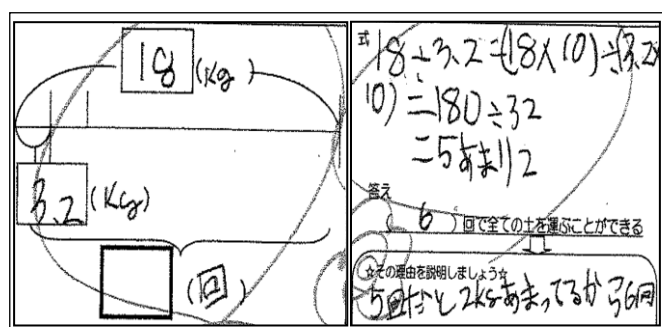 18 (kg)
3.2 (kg)
(回)
式 18÷3.2=(18×10)÷(3.2×
10)=180÷32
=5あまり2
答え
( 6 )回で全ての土を運ぶことができる
☆その理由を説明しましょう☆
5回だと2kgあまってるから6回